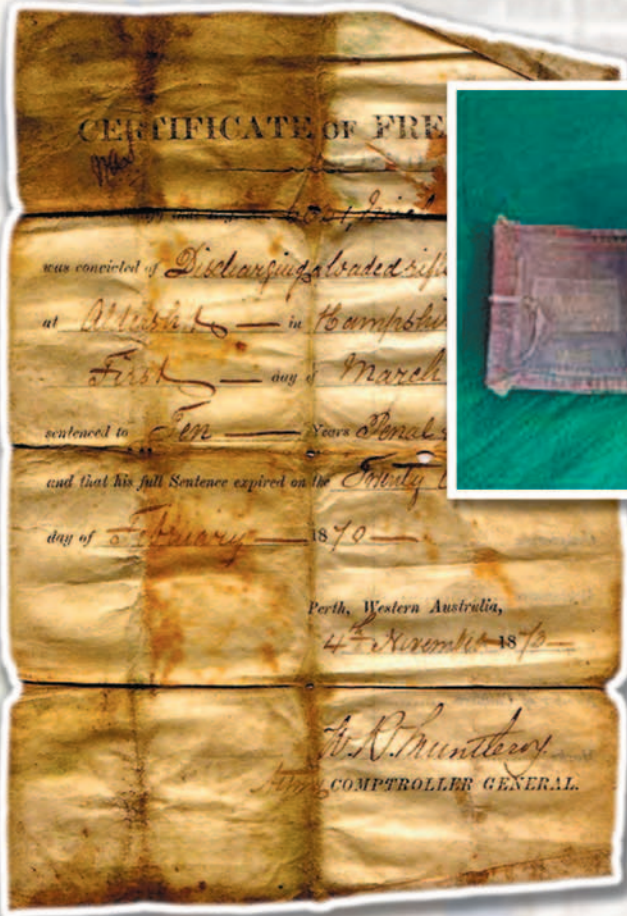 CERTIFICATE OF FRE
was convicted of Discharging a loaded rifl
at Aldershot in Hampshir
First day of March
sentenced to Ten Years Penal
and that his full Sentence expired on the Twenty
day of February 1870
Perth, Western Australia,
4th November 1870
COMPTROLLER GENERAL.